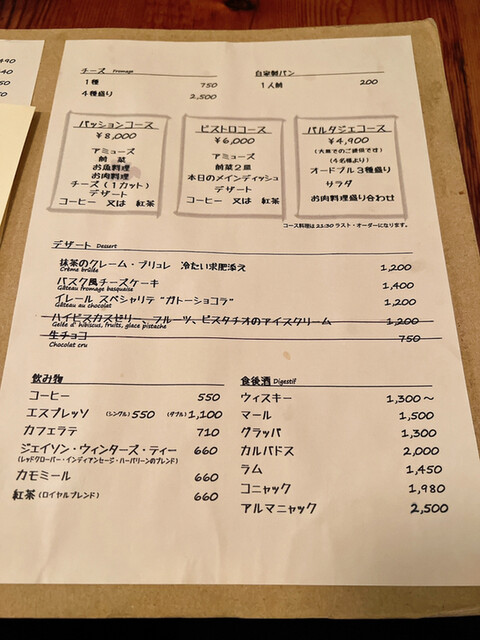 490
40
50
50
チーズ Fromage
1種 750
4種盛り 2,500
自家製パン
1人前 200
パッションコース
¥8,000
アミューズ
前菜
お魚料理
お肉料理
チーズ（1カット）
デザート
コーヒー 又は 紅茶
ビストロコース
¥6,000
アミューズ
前菜2皿
本日のメインディッシュ
デザート
コーヒー 又は 紅茶
パルタジェコース
¥4,900
(大皿でのご提供です)
(4名様より)
オードブル3種盛り
サラダ
お肉料理盛り合わせ
コース料理は21:30ラスト・オーダーになります。
デザート Dessert
抹茶のクレーム・ブリュレ 冷たい求肥添え 1,200
Crème brûlée
バスク風チーズケーキ 1,400
Gâteau fromage basquaise
イレール スペシャリテ“ガトーショコラ” 1,200
Gâteau au chocolat
ハイビスカスゼリー、フルーツ、ピスタチオのアイスクリーム 1,200
Gelée d' hibiscus, fruits, glace pistache
生チョコ 750
Chocolat cru
飲み物
コーヒー 550
エスプレッソ (シングル) 550 (ダブル) 1,100
カフェラテ 710
ジェイソン・ウィンターズ・ティー 660
(レッドクローバー・インディアンセージ・ハーバリーンのブレンド)
カモミール 660
紅茶(ロイヤルブレンド) 660
食後酒 Digestif
ウィスキー 1,300～
マール 1,500
グラッパ 1,300
カルバドス 2,000
ラム 1,450
コニャック 1,980
アルマニャック 2,500